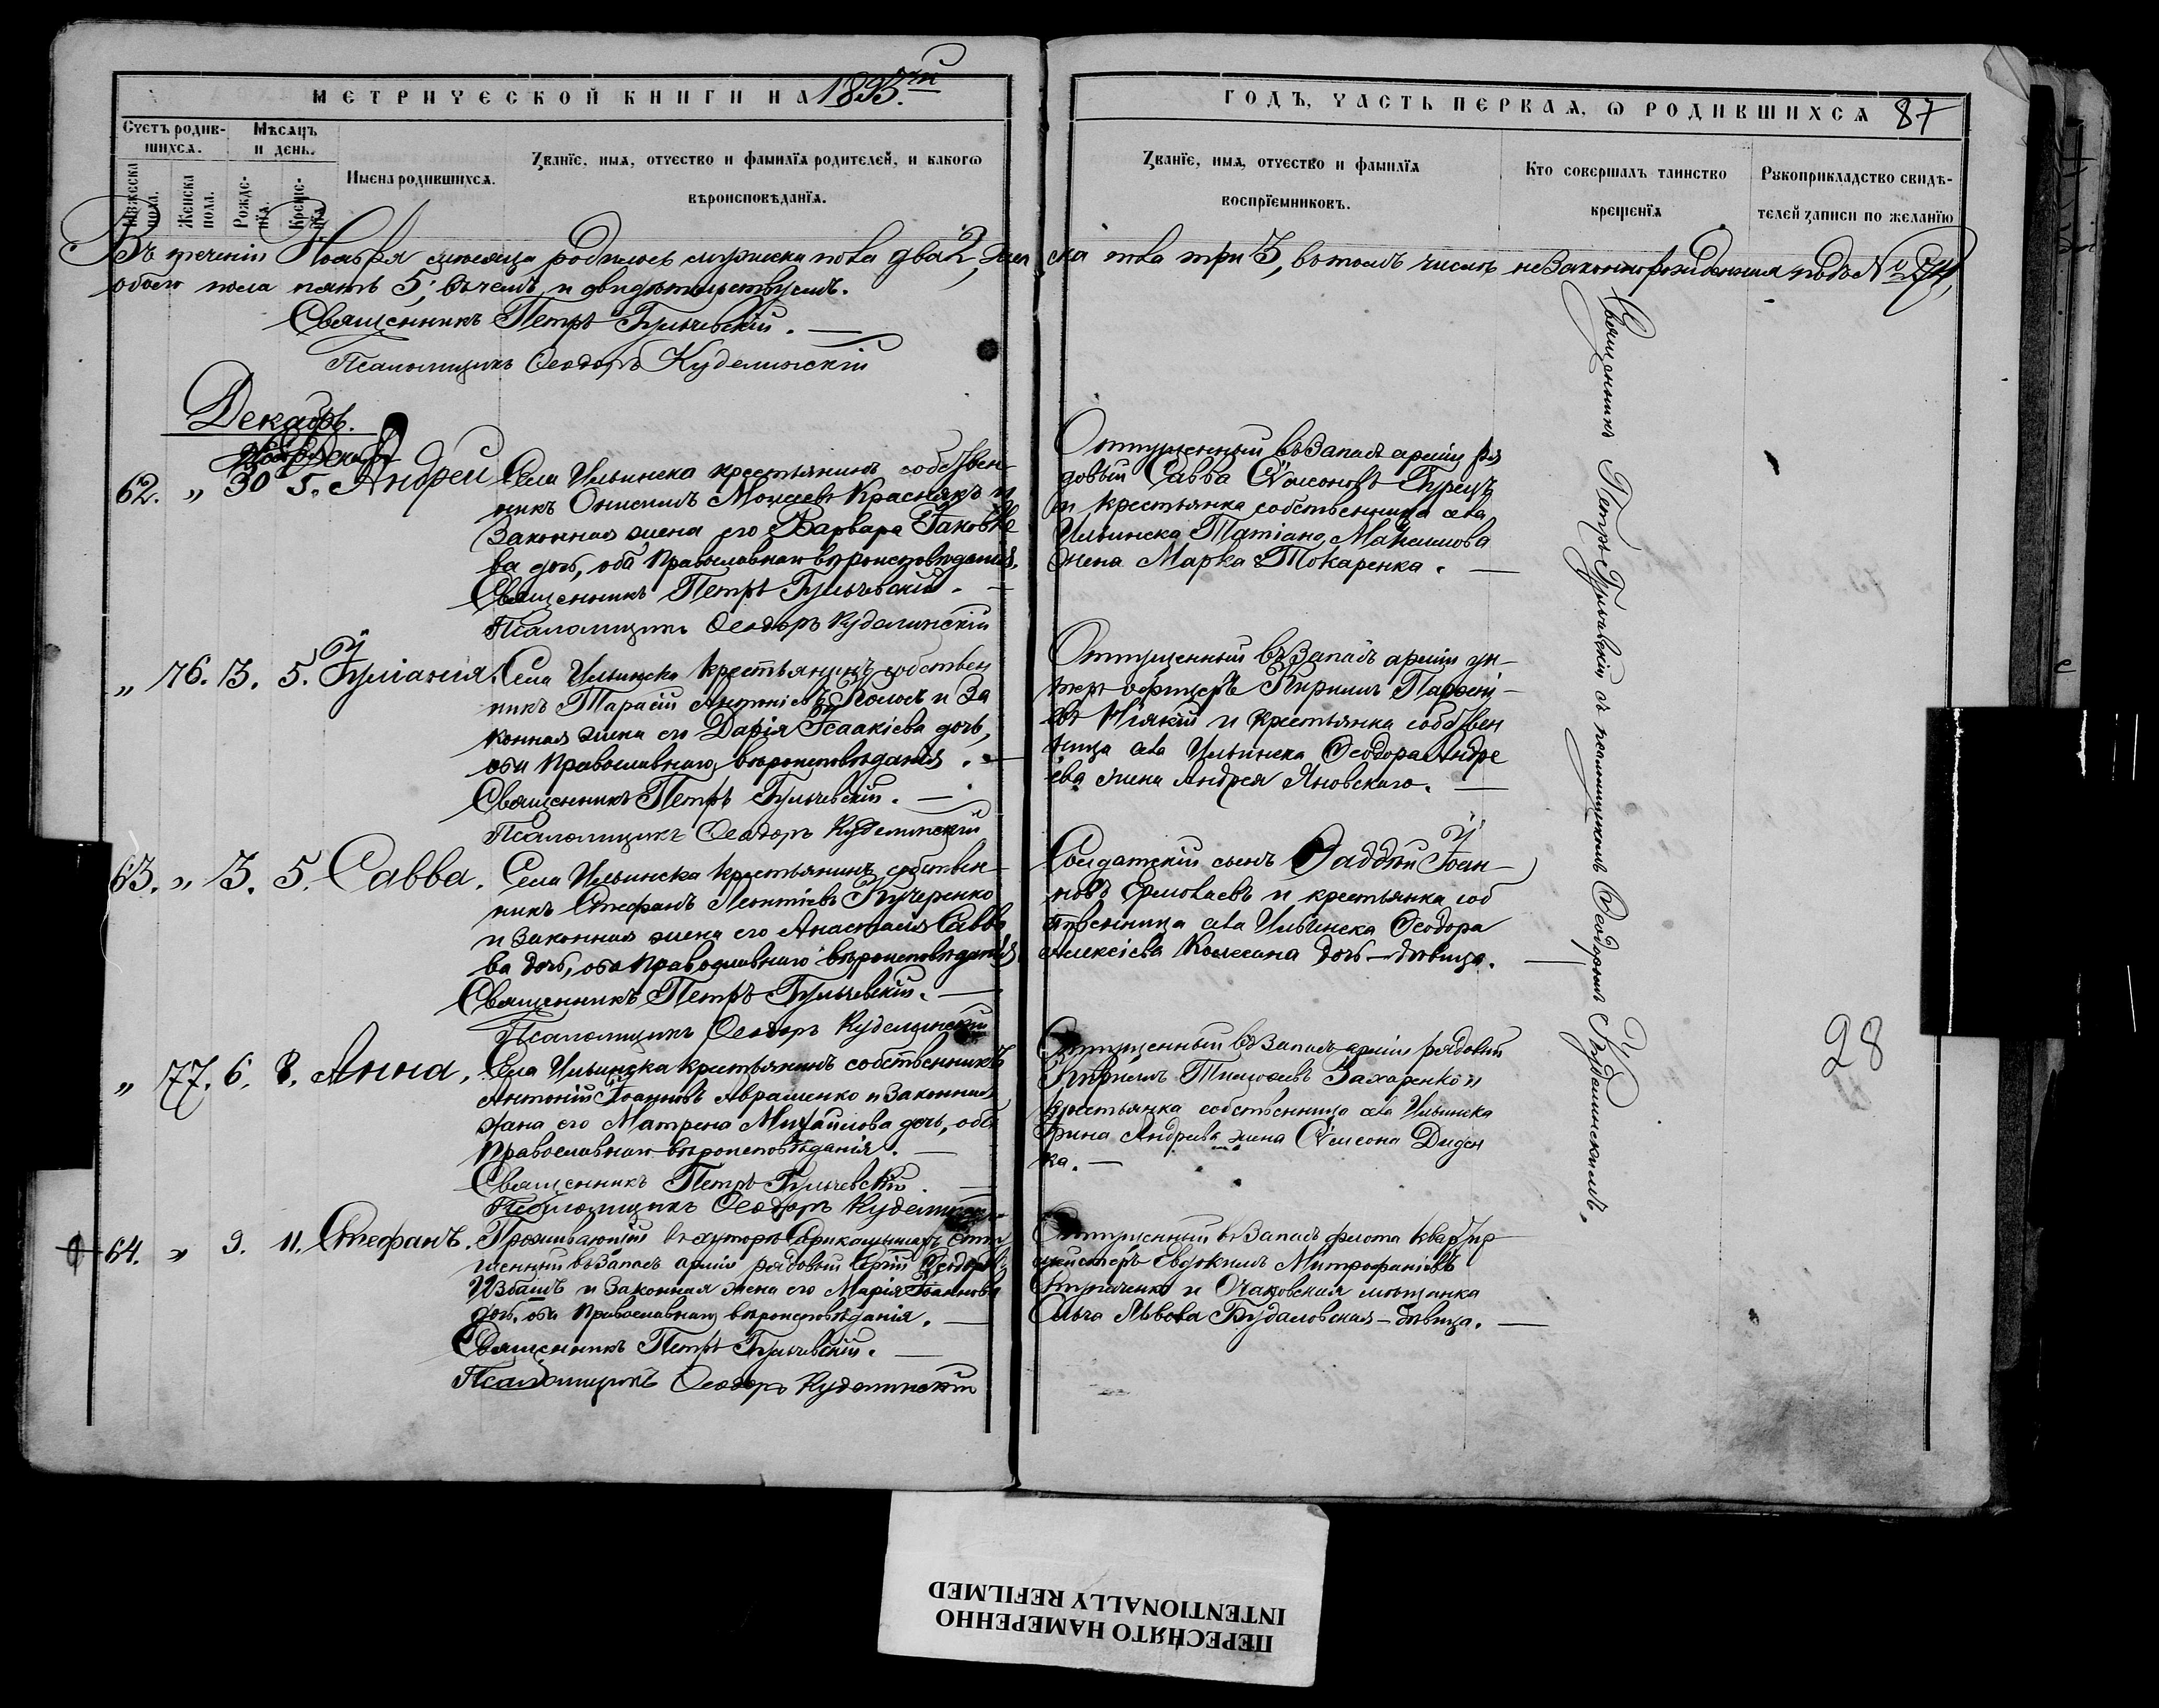 МЕТРИЧЕСКОЙ КНИГИ НА 1893й
ГОДЪ, ЧАСТЬ ПЕРВАЯ, Ѡ РОДИВШИХСЯ 87
Счетъ родив-
шихся.
Мѣсяцъ
и день.
Мужеска
пола.
Женска
пола.
Рожде-
нїя.
Креще-
нїя.
Имена родившихся.
Званїе, имя, отчество и фамилїя родителей, и какогѡ
вѣроисповѣданїя.
Званїе, имя, отчество и фамилїя
воспрїемниковъ.
Кто совершалъ таинство
крещенїя
Рукоприкладство свидѣ-
телей записи по желанїю
Въ теченіи Ноября мѣсяца родилось мужеска пола два 2, жен
ска пола три 3, въ томъ числѣ незаконнорожденная подъ № 74,
обоего пола пять 5; въ чемъ и свидѣтельствуемъ.
Священникъ Петръ
Псаломщикъ Ѳеодоръ Куделинскій
Декабрь.
62. „ 30 5. Андрей
Села Ильинска крестьянинъ собствен-
никъ Онисимъ Моисеевъ Краснякъ и
законная жена его Варвара Іаковле
ва дочь, оба православнаго вѣроисповѣданія.
Священникъ Петръ
Псаломщикъ Ѳеодоръ Куделинскій
Отпущенный въ запасъ арміи ря
довый Савва Сѵмеоновъ Гурецъ
и крестьянка собственница села
Ильинска Татіана Максимова
жена Марка Токаренка. —
„ 76. 3. 5. Іуліанія.
Села Ильинска крестьянинъ собствен
никъ Тарасій Антоніевъ и за
конная жена его Дарія Ісаакіева дочь,
оба православнаго вѣроисповѣданія. —
Священникъ Петръ
Псаломщикъ Ѳеодоръ Куделинскій
Отпущенный въ запасъ арміи ун-
теръ-офицеръ Кириллъ Парѳені-
евъ и крестьянка собствен
ница села Ильинска Ѳеодора Андре
ева жена Андрея Яновскаго. —
63. „ 3. 5. Савва.
Села Ильинска крестьянинъ собствен-
никъ Стефанъ Леонтіевъ Кучеренко
и законная жена его Анастасія Савво
ва дочь, оба православнаго вѣроисповѣданія.
Священникъ Петръ
Псаломщикъ Ѳеодоръ Куделинскій
Солдатскій сынъ Ѳаддѣй Іоан-
новъ Ермолаевъ и крестьянка соб
ственница села Ильинска Ѳеодора
Алексіева дочь — дѣвица. —
„ 77. 6. 8. Анна,
Села Ильинска крестьянинъ собственникъ
Антоній Іоанновъ Авраменко и законная
жена его Матрена Михайлова дочь, оба
православнаго вѣроисповѣданія. —
Священникъ Петръ
Псаломщикъ Ѳеодоръ Куделинскій
Отпущенный въ запасъ арміи рядовый
Кириллъ Тимоѳеевъ Захаренко и
крестьянка собственница села Ильинска
Ирина Андреева жена Сѵмеона Диден
ка. —
64. „ 9. 11. Стефанъ.
Проживающій въ хуторѣ отпу
щенный въ запасъ арміи рядовый Сергій Ѳеодоровъ
Избашъ и законная жена его Марія Іоаннова
дочь, оба православнаго вѣроисповѣданія. —
Священникъ Петръ
Псаломщикъ Ѳеодоръ Куделинскій
Отпущенный въ запасъ флота квартир
мейстеръ Евдокимъ Митрофаніевъ
и Очаковская мѣщанка
Ольга Львова Будаловская — дѣвица. —
Священникъ Петръ съ псаломщикомъ Ѳеодоромъ Куделинскимъ.
28
ПЕРЕСНЯТО НАМЕРЕННО
INTENTIONALLY REFILMED